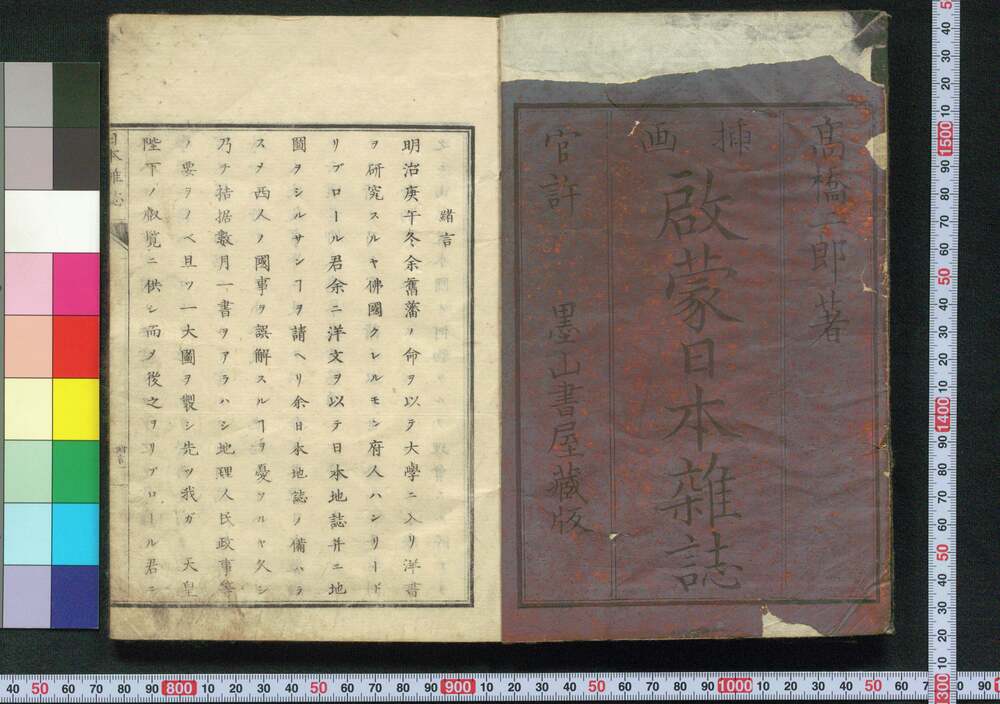 髙橋二郎著
挿画
啟蒙日本雜誌
官許
墨山書屋藏版
緒言
明治庚午冬余舊藩ノ命ヲ以テ大學ニ入リ洋書
ヲ研究スルヤ佛國クレルモン府人ハンリード
リブロール君余ニ洋文ヲ以テ日本地誌幷ニ地
圖ヲシルサンヿヲ請ヘリ余日本地誌ノ備ハラ
スメ西人ノ國事ヲ誤解スルヿヲ憂ツルヤ久シ
乃チ拮据數月一書ヲアラハシ地理人民政事等
ノ要ヲノベ且ツ一大圖ヲ製シ先ツ我ガ 天皇
陛下ノ叡覧ニ供シ而メ後之ヲリブロール君ニ
日本雜誌
緒言
40 50 60 70 80 90 800 10 20 30 40 50 60 70 80 90 900 10 20 30 40 50 60 70 80 90 1000 10 20 30 40 50 60 70